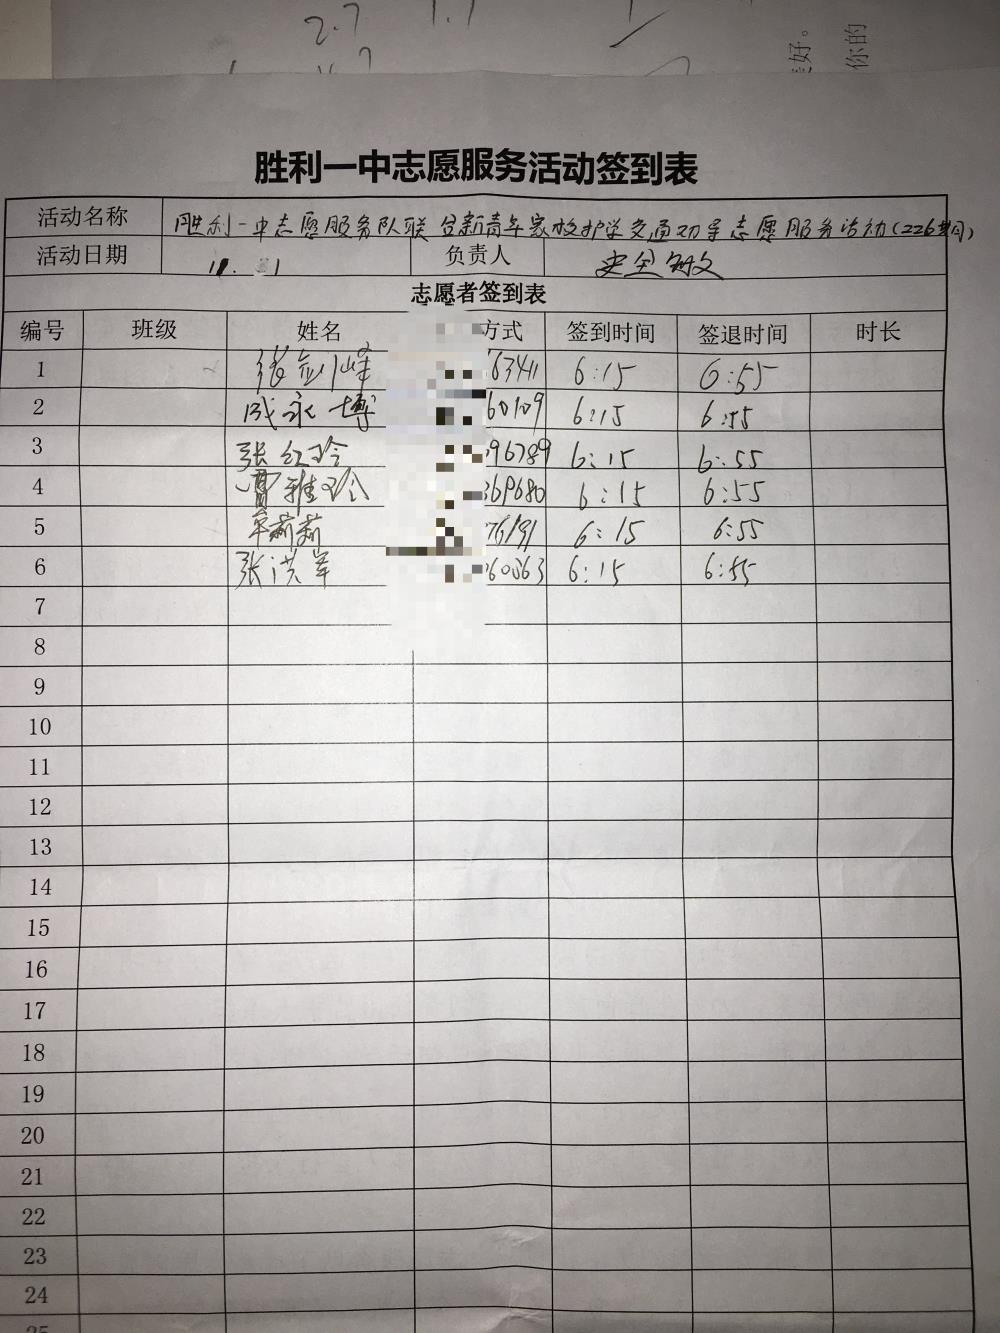 2.7 1.1
你的
好。
胜利一中志愿服务活动签到表
活动名称 胜利一中志愿服务队联合新青年家校护学交通劝导志愿服务活动(226期)
活动日期 负责人
志愿者签到表
编号 班级 姓名 方式 签到时间 签退时间 时长
1 张剑峰 63411 6:15 6:55
2 成永博 60109 6:15 6:55
3 张红玲 96789 6:15 6:55
4 贾雅玲 369680 6:15 6:55
5 莉莉 76191 6:15 6:55
6 张洪军 60363 6:15 6:55
7
8
9
10
11
12
13
14
15
16
17
18
19
20
21
22
23
24
25